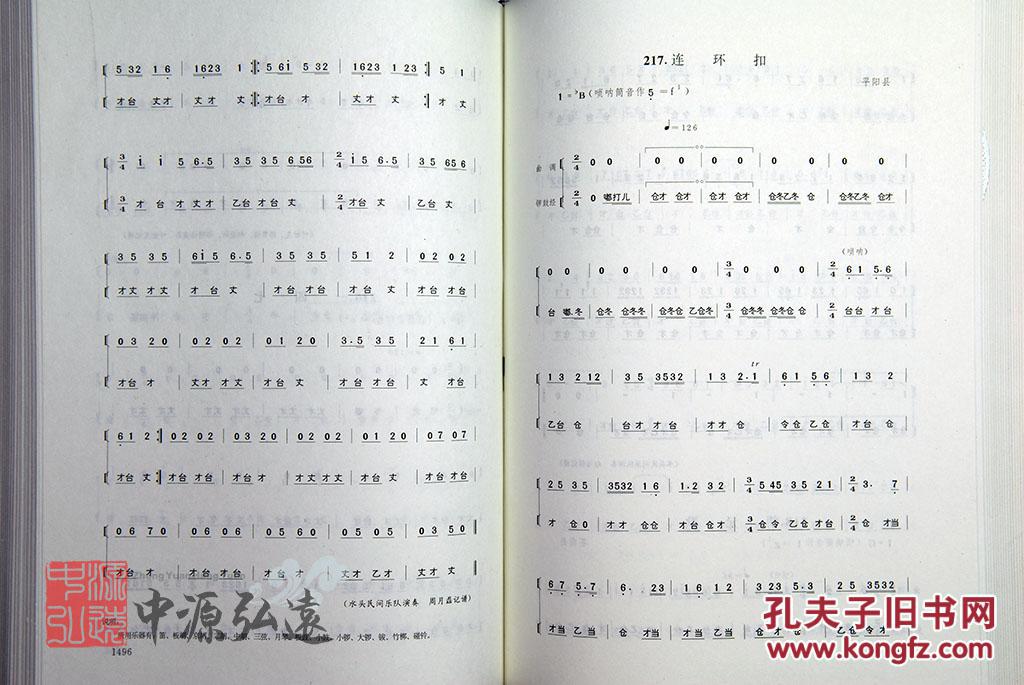 5 32 1 6 | 1623 1 :‖: 5 6 i 5 32 | 1623 1 23 :‖ 5 1
才台 丈才 | 丈才 丈 :‖: 才台 才 | 丈才 丈 :‖ 才 丈
3/4 i i 5 6·5 | 35 35 656 | 2/4 i 5 6·5 | 35 656
3/4 才 台 才 丈才 | 乙台 才台 丈 | 2/4 才台 丈 | 乙台 丈
35 35 | 6i 6·5 | 35 35 | 51 2 | 02 02
才丈 才丈 | 才台 丈 | 才台 才台 | 才台 丈 | 才台 才台
03 20 | 02 02 | 01 20 | 3·5 35 | 21 61
才台 才 | 丈才 丈才 | 才台 丈 | 才台 才台 | 丈 才台
61 2 :‖ 02 02 | 03 20 | 02 02 | 01 20 | 07 07
才台 丈 :‖ 才台 才台 | 才台 才 | 才台 丈 | 才台 才台
06 70 | 06 06 | 05 05 | 05 05 | 03 50
才台 才 | 丈才 乙才 | 丈才 丈
(水头民间乐队演奏 周月磊记谱)
说明:
1496
217. 连 环 扣
平阳县
1=♭B(唢呐筒音作5=f¹)
♩=126
曲 调 2/4 0 0 | 0 0 | 0 0 | 0 0 | 0 0
锣鼓经 2/4 0 嘟打儿 | 仓才 仓才 | 仓才 仓才 | 仓冬乙冬 仓 | 仓冬乙冬 仓才
(唢呐)
0 0 | 0 0 | 0 0 | 3/4 0 0 0 | 2/4 61 5·6
台 嘟冬 | 仓冬 仓冬冬 | 仓冬仓 乙仓冬 | 3/4 仓冬冬 仓冬仓 仓 | 2/4 台台 才台
tr
13 212 | 35 3532 | 13 2·1 | 61 56 | 13 2
乙台 仓 | 台才 才台 | 才才 仓 | 令仓 乙仓 | 才台 仓
25 35 | 3532 16 | 1·2 32 | 3/4 5 45 35 21 | 2/4 3· 7
才 仓0 | 才才 仓仓 | 才台 仓才 | 3/4 仓令 乙仓 才台 | 2/4 仓 才当
67 5·7 | 6 23 | 16 12 | 35 13 | 25 3532
才当 乙当 | 仓 才当 | 乙当 乙 仓 | 才当 乙当 | 乙仓 令才
中源弘遠
孔夫子旧书网
www.kongfz.com